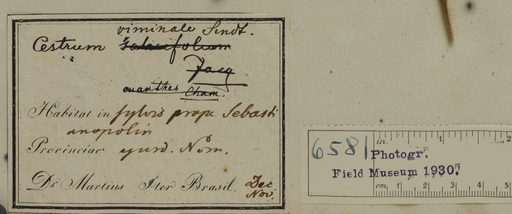 viminale Sendt.
Cestrum salicifolium
Jacq
euanthes Cham.
Habitat in sylvis prope Sebasti
anopolin
Provinciae ejusd. Nom.
Dr. Martius Iter Brasil. Dec
Nov.
6581
in
1
2
Photogr.
Field Museum 1930.
cm.
1 2 3 4 5